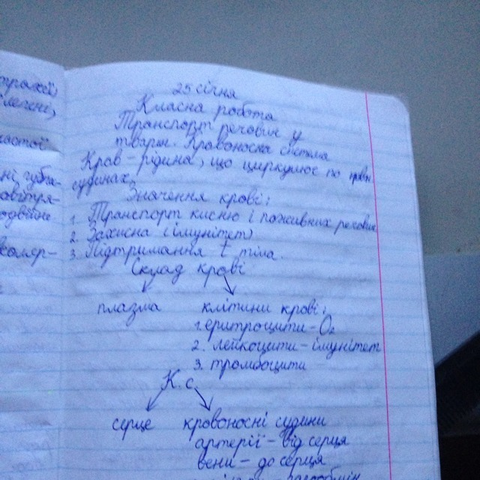 трахеї,
легені,
ні губи-
25 січня
Класна робота
Транспорт речовин у
тварин. Кровоносна система
Кров - рідина, що циркулює по кров.
судинах.
Значення крові:
1. Транспорт кисню і поживних речовин
2. Захисна (імунітет)
3. Підтримання t тіла.
Склад крові
плазма клітини крові:
1. еритроцити - O₂
2. лейкоцити - імунітет
3. тромбоцити
К. с
серце кровоносні судини
артерії - від серця
вени - до серця
газообмін